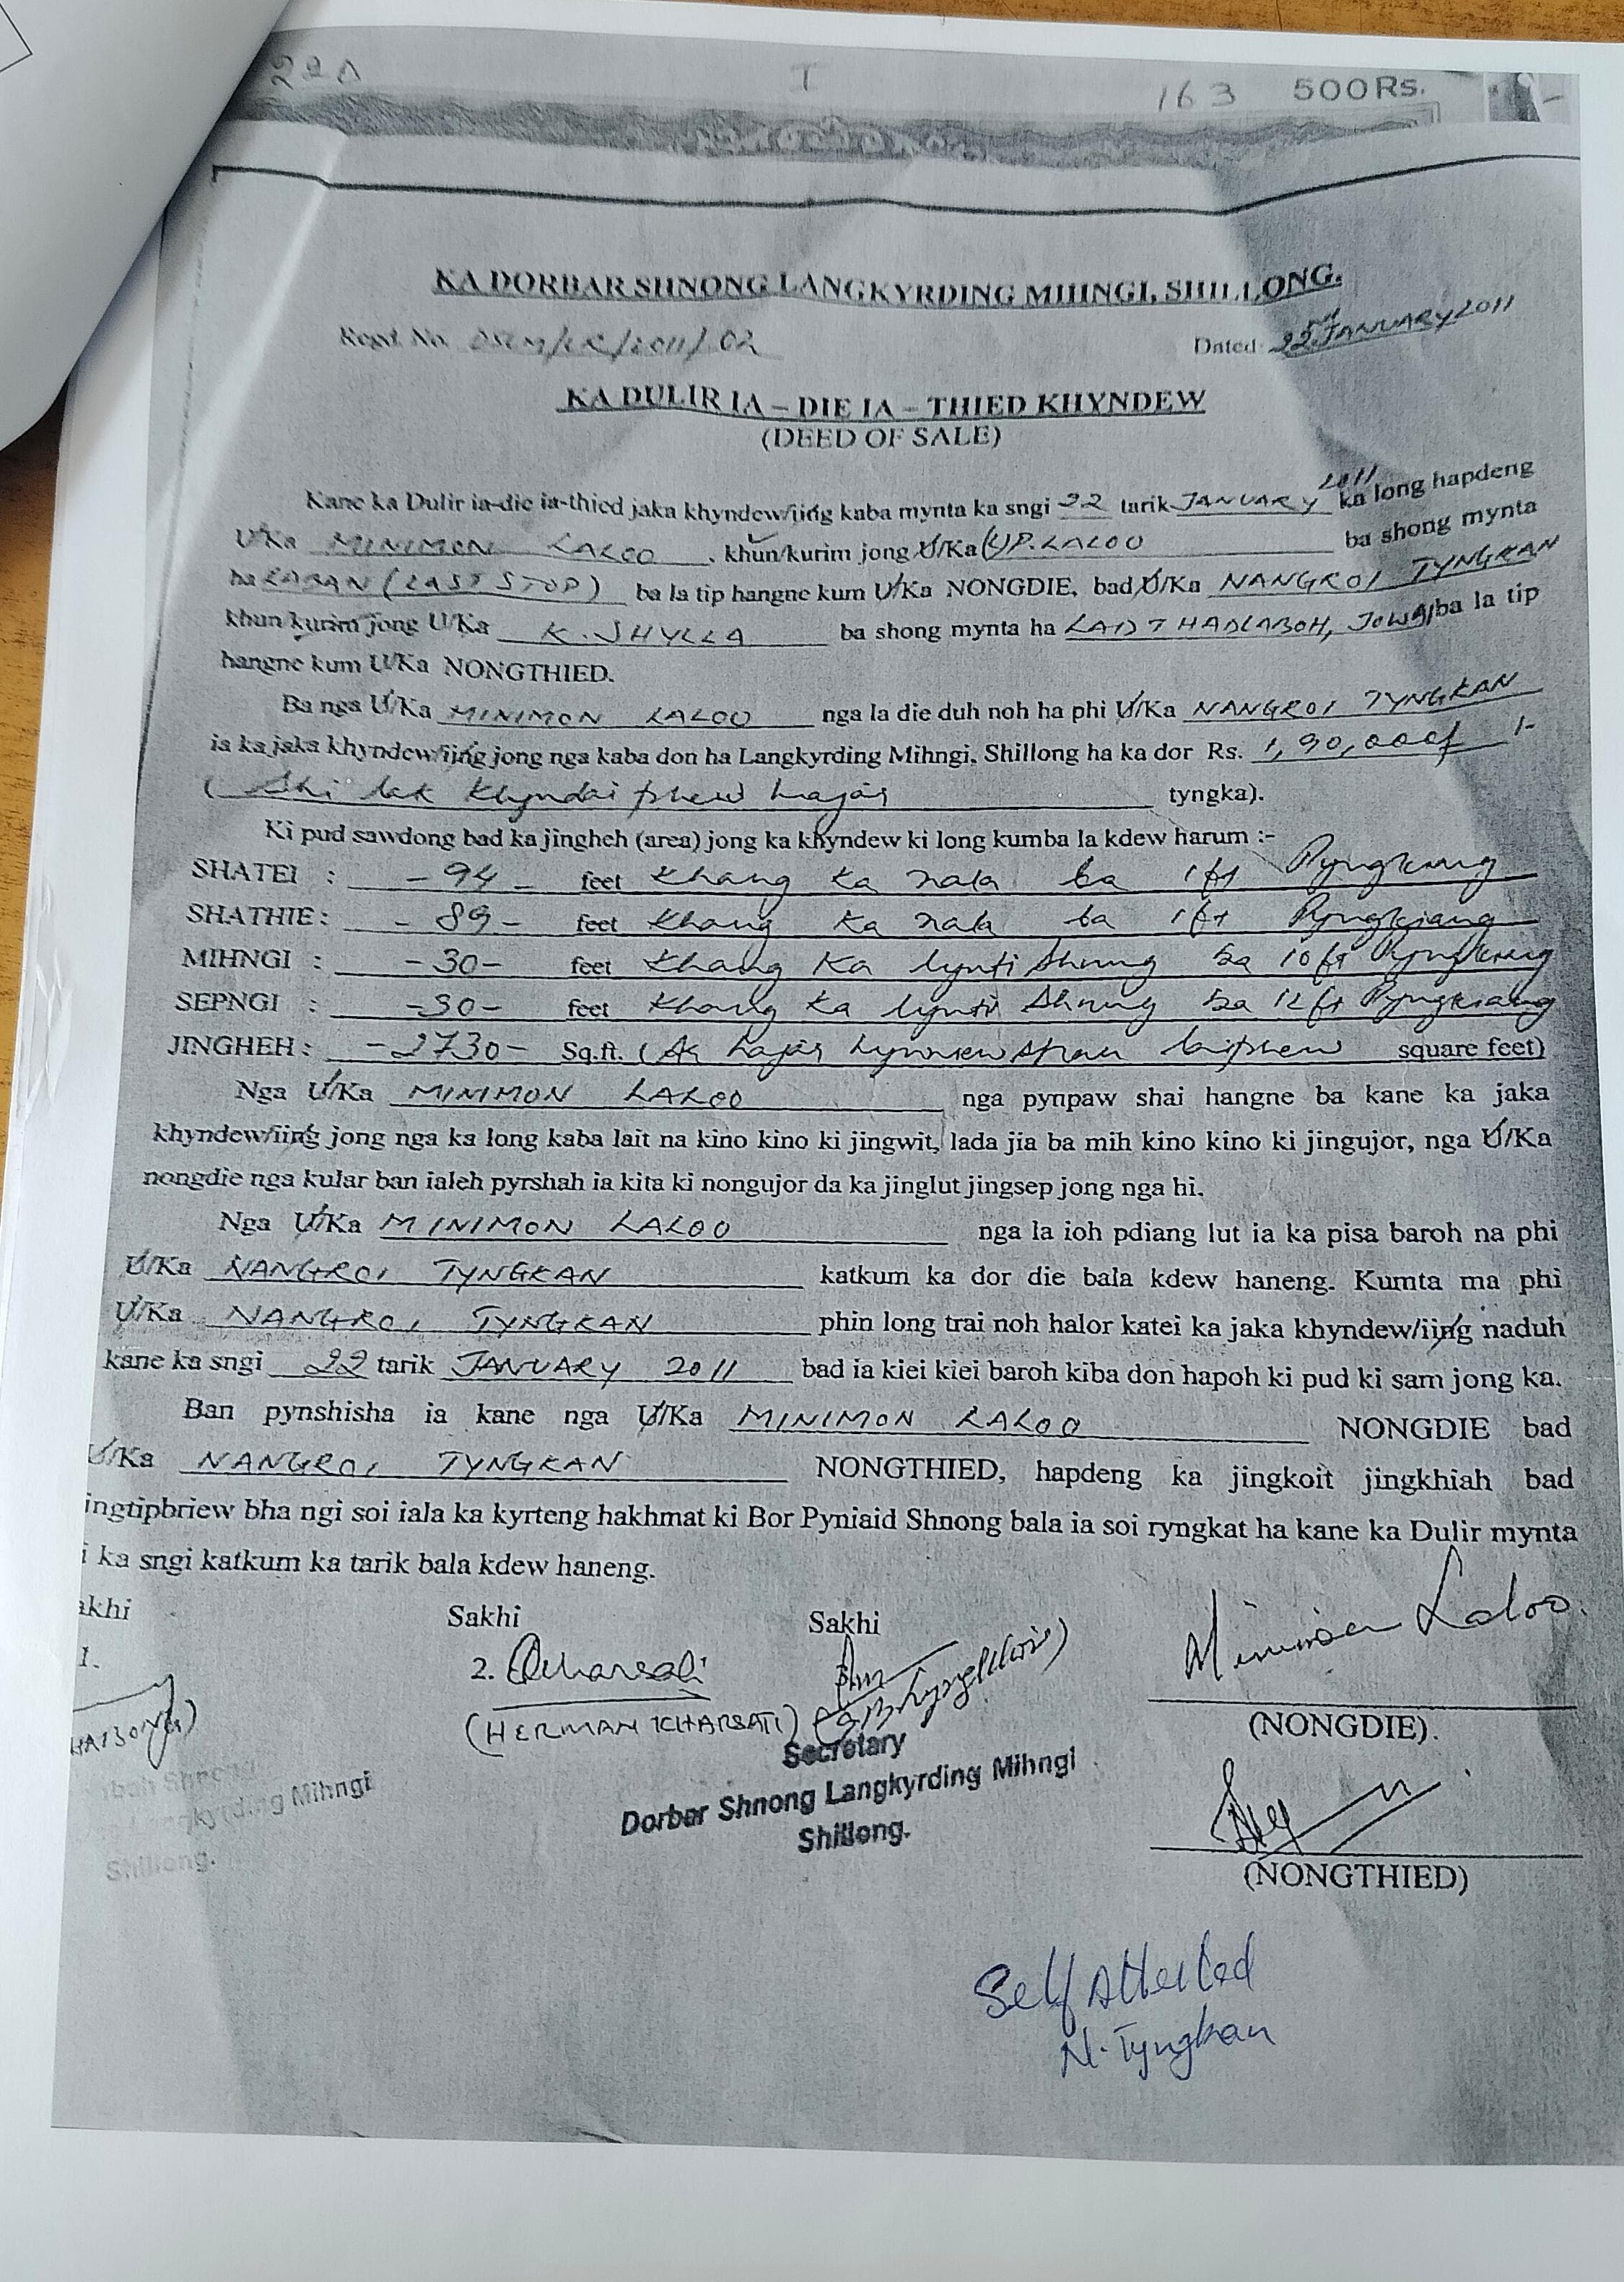 I 163 500Rs.
KA DORBAR SHNONG LANGKYRDING MIHNGI, SHILLONG.
Regd. No. DSLM/LR/2011/02 Dated 22nd JANUARY 2011
KA DULIR IA – DIE IA – THIED KHYNDEW
(DEED OF SALE)
Kane ka Dulir ia-die ia-thied jaka khyndew/iing kaba mynta ka sngi 22 tarik JANUARY 2011 ka long hapdeng
U/Ka MINIMON LALOO, khun/kurim jong U/Ka (L)P. LALOO ba shong mynta
ha LABAN (LAST STOP) ba la tip hangne kum U/Ka NONGDIE, bad U/Ka NANGROI TYNGKAN
khun kurim jong U/Ka K. SHYLLA ba shong mynta ha LAD THADLABOH, JOWAI ba la tip
hangne kum U/Ka NONGTHIED.
Ba nga U/Ka MINIMON LALOO nga la die duh noh ha phi U/Ka NANGROI TYNGKAN
ia ka jaka khyndew/iing jong nga kaba don ha Langkyrding Mihngi, Shillong ha ka dor Rs. 1,90,000/- /-
( Shi lak Khyndai phew hajar tyngka).
Ki pud sawdong bad ka jingheh (area) jong ka khyndew ki long kumba la kdew harum :-
SHATEI : - 94 - feet Khang ka nala ba 1 ft Pyngkiang
SHATHIE : - 89 - feet Khang ka nala ba 1 ft Pyngkiang
MIHNGI : - 30 - feet Khang Ka lynti Shnong ba 10 ft Pyngkiang
SEPNGI : - 30 - feet Khang ka lynti Shnong ba 12 ft Pyngkiang
JINGHEH : - 2730 - Sq.ft. (Ar hajar hynniew spah laiphew square feet)
Nga U/Ka MINIMON LALOO nga pynpaw shai hangne ba kane ka jaka
khyndew/iing jong nga ka long kaba lait na kino kino ki jingwit, lada jia ba mih kino kino ki jingujor, nga U/Ka
nongdie nga kular ban ialeh pyrshah ia kita ki nongujor da ka jinglut jingsep jong nga hi.
Nga U/Ka MINIMON LALOO nga la ioh pdiang lut ia ka pisa baroh na phi
U/Ka NANGROI TYNGKAN katkum ka dor die bala kdew haneng. Kumta ma phi
U/Ka NANGROI TYNGKAN phin long trai noh halor katei ka jaka khyndew/iing naduh
kane ka sngi 22 tarik JANUARY 2011 bad ia kiei kiei baroh kiba don hapoh ki pud ki sam jong ka.
Ban pynshisha ia kane nga U/Ka MINIMON LALOO NONGDIE bad
U/Ka NANGROI TYNGKAN NONGTHIED, hapdeng ka jingkoit jingkhiah bad
ingtipbriew bha ngi soi iala ka kyrteng hakhmat ki Bor Pyniaid Shnong bala ia soi ryngkat ha kane ka Dulir mynta
i ka sngi katkum ka tarik bala kdew haneng.
akhi Sakhi Sakhi Minimon Laloo.
1. 2.
(HERMAN KHARSATI)
(NONGDIE).
Secretary
Dorbar Shnong Langkyrding Mihngi
Shillong.
rbah Shnong
gkyrding Mihngi
Shillong.
(NONGTHIED)
Self Attested
N. Tyngkan